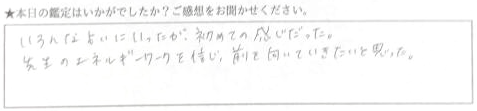 ★本日の鑑定はいかがでしたか？ご感想をお聞かせください。
いろんな占いにいったが、初めての感じだった。
先生のエネルギーワークを信じ、前を向いていきたいと思った。